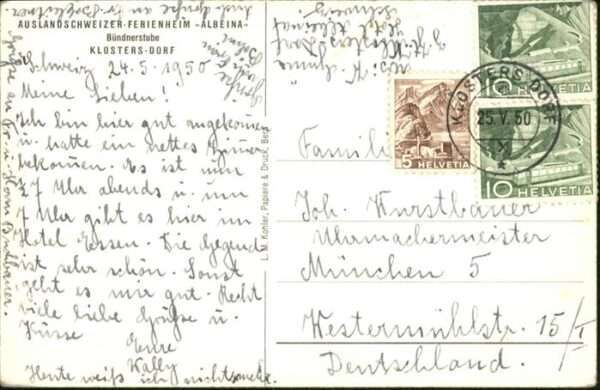 AUSLANDSCHWEIZER-FERIENHEIM -ALBEINA-
Bündnerstube
KLOSTERS-DORF
Schweiz 24.5.1950
Meine Lieben!
Ich bin hier gut angekommen
u. hatte ein nettes Zimmer
bekommen. Es ist nun
½7 Uhr abends u. um
7 Uhr gibt es hier im
Hotel Essen. Die Gegend
ist sehr schön. Sonst
geht es mir gut. Recht
viele liebe Grüße u.
Küsse
Eure
Wally
Heute weiß ich nichts mehr.
Grüße an Fr. u. Herrn
Auch Grüße an
L. M. Kohler, Papier & Druck, Bern
Hotel Albeina
Klosters Dorf
Schweiz
5 HELVETIA
10 HELVETIA
10 HELVETIA
KLOSTERS-DORF
25.V.50
Familie
Joh. Wurstbauer
Uhrmachermeister
München 5
Westermühlstr. 15/I
Deutschland.